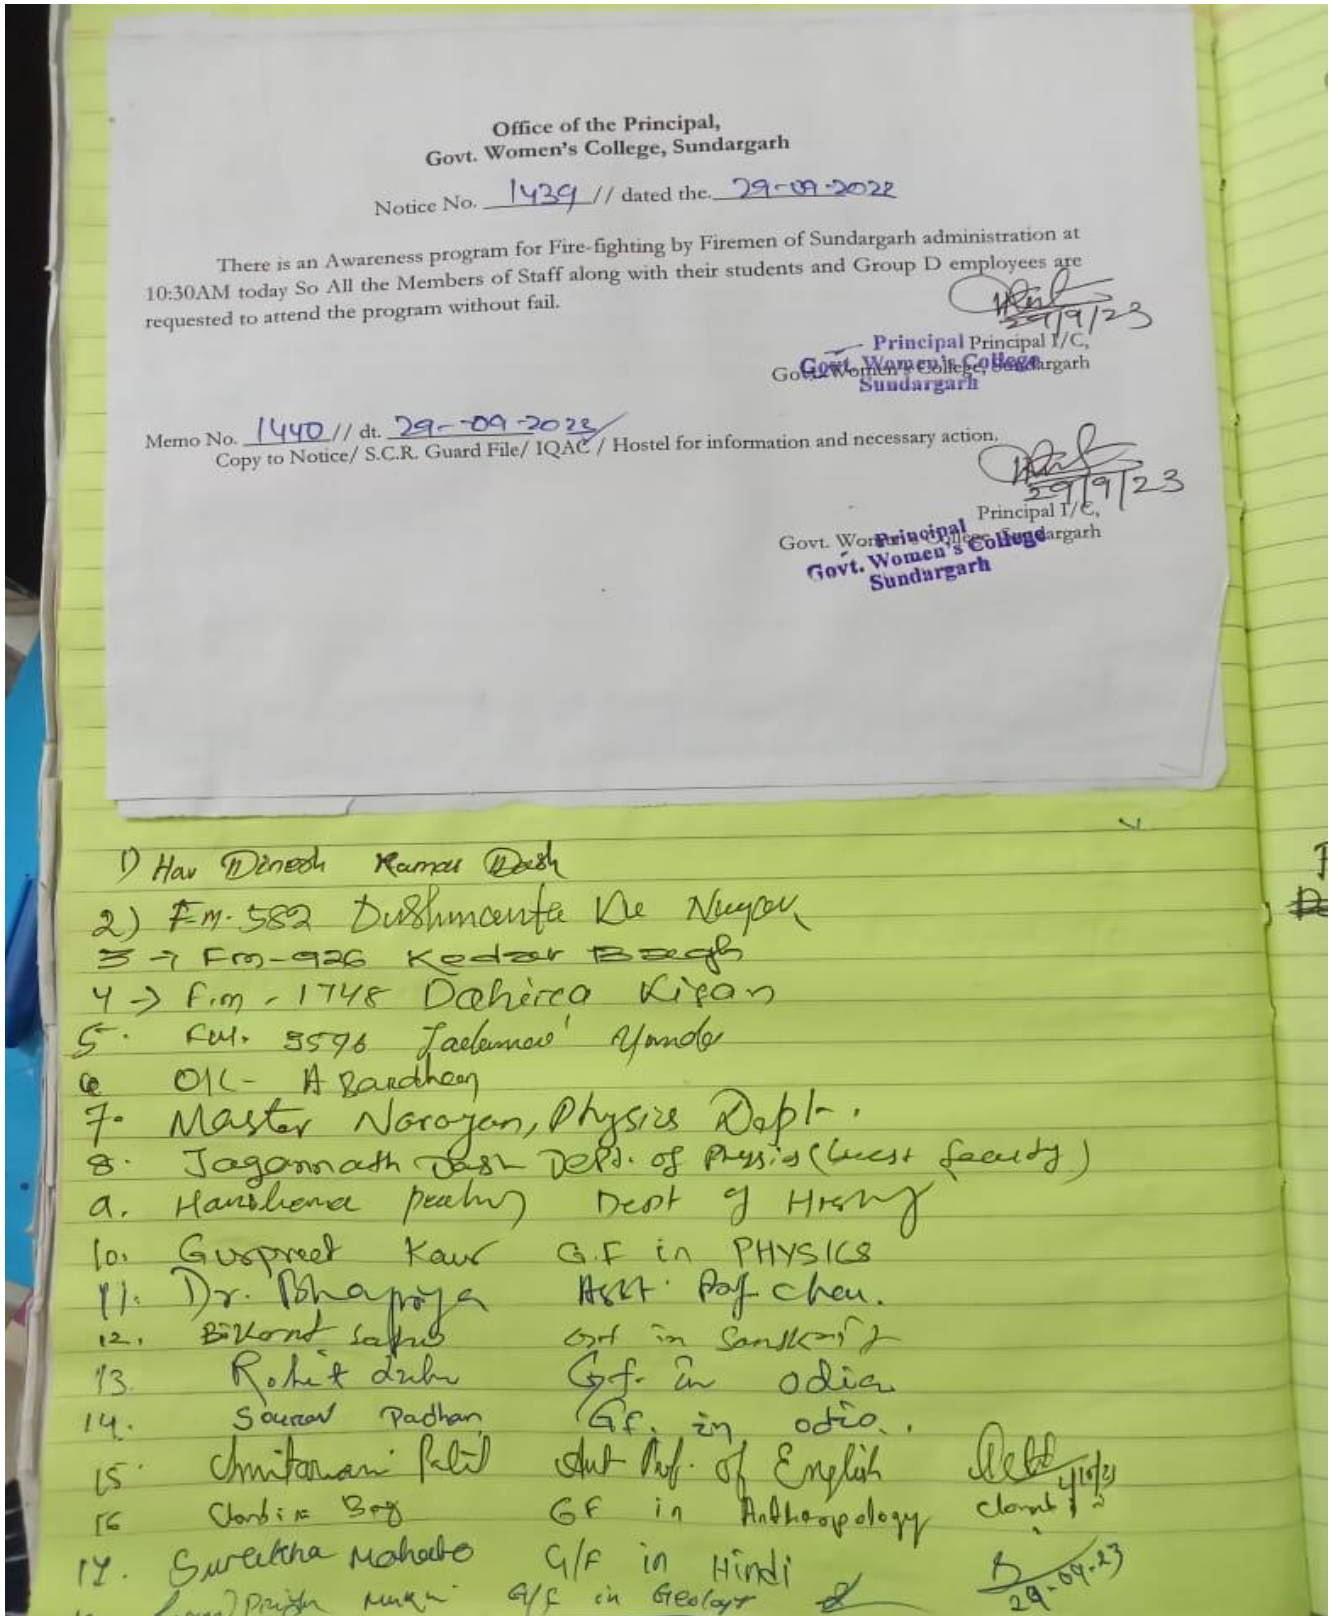 Office of the Principal,
Govt. Women's College, Sundargarh
Notice No. 1439 // dated the. 29-09-2022
There is an Awareness program for Fire-fighting by Firemen of Sundargarh administration at
10:30AM today So All the Members of Staff along with their students and Group D employees are
requested to attend the program without fail.
29/9/23
Principal Principal I/C,
Govt. Women's College, Sundargarh
Govt. Women's College
Sundargarh
Memo No. 1440 // dt. 29-09-2023
Copy to Notice/ S.C.R. Guard File/ IQAC / Hostel for information and necessary action.
29/9/23
Principal I/C,
Govt. Women's College, Sundargarh
Principal
Govt. Women's College
Sundargarh
1) Hav Dinesh Kumar Dash
2) F.M. 582 Dushmanta
3 → Fm-926 Kedar Bagh
4 → F.m - 1748 Kisan
5. 
6 A Bardhan
7. Master Narayan, Physics Dept.
8. Jagannath Dash Dept. of Physics (Guest faculty)
9. Dept of History
10. Gurpreet Kaur G.F in PHYSICS
11. Dr. Asst. Prof. Chem.
12. in Sanskrit
13. Rohit G.f. in odia
14. Sourav Padhan G.F. in odia.
15. Asst Prof. of English
16 GF in Anthropology
17. Mahato G/F in Hindi 29-09-23
G/F in Geology